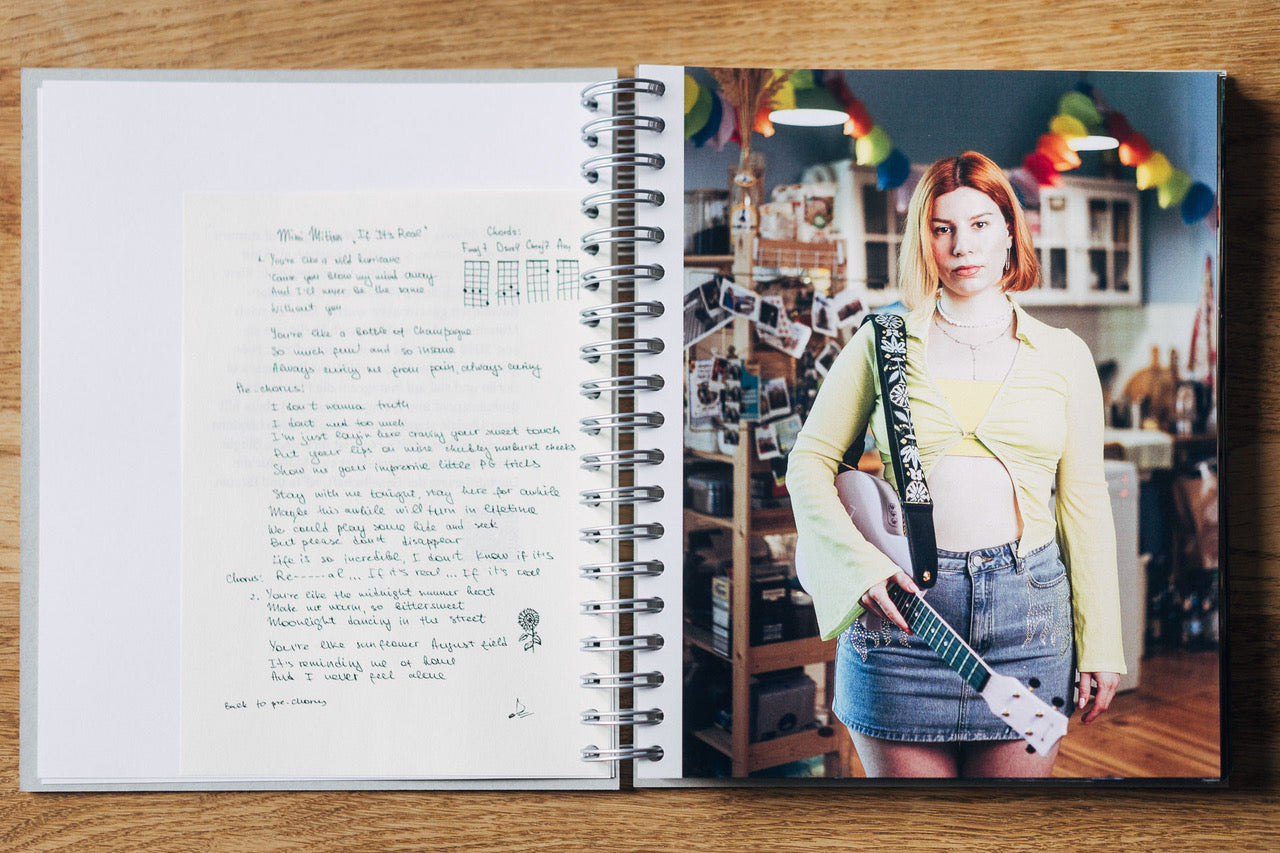 Mimi Mitten „If It's Real"
Chords:
Fmaj7 Dsus2 Cmaj7 Am
1. You're like a wild hurricane
'Cause you blow my mind away
And I'll never be the same
Without you
You're like a bottle of Champagne
So much fun and so insane
Always curing me from pain, always curing
Pre-chorus:
I don't wanna truth
I don't need too much
I'm just layin here craving your sweet touch
Put your lips on mine chubby sunburnt cheeks
Show me your impressive little PG tricks
Stay with me tonight, stay here for awhile
Maybe this awhile will turn in lifetime
We could play some hide and seek
But please don't disappear
Life is so incredible, I don't know if it's
Chorus: Re-----al... If it's real... If it's real
2. You're like the midnight summer heat
Make me warm, so bittersweet
Moonlight dancing in the street
You're like sunflower August field
It's reminding me of home
And I never feel alone
Back to pre-chorus